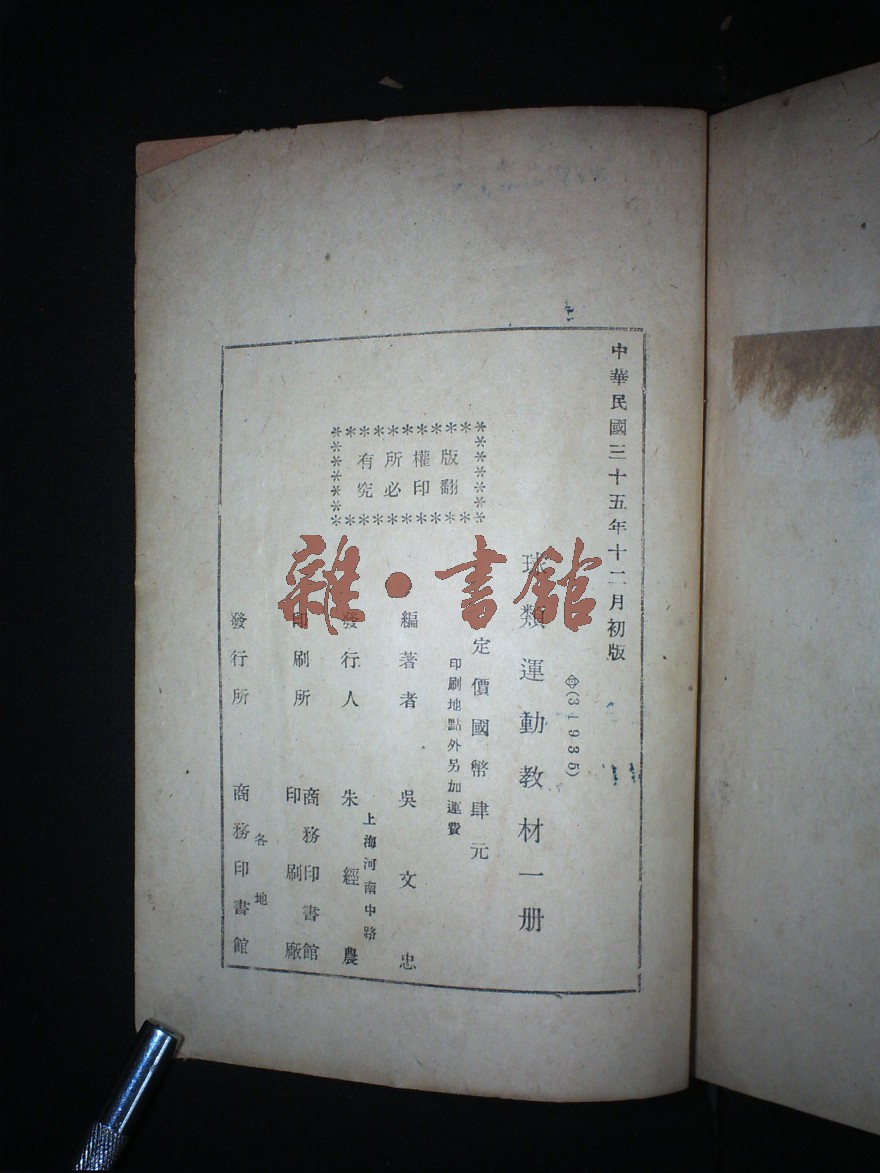 中華民國三十五年十二月初版
㊥(31935)
球類運動教材一册
定價國幣肆元
印刷地點外另加運費
版權所有
翻印必究
編著者 吳文忠
上海河南中路
發行人 朱經農
印刷所 商務印書館
印刷廠
各地
發行所 商務印書館
雜·書館